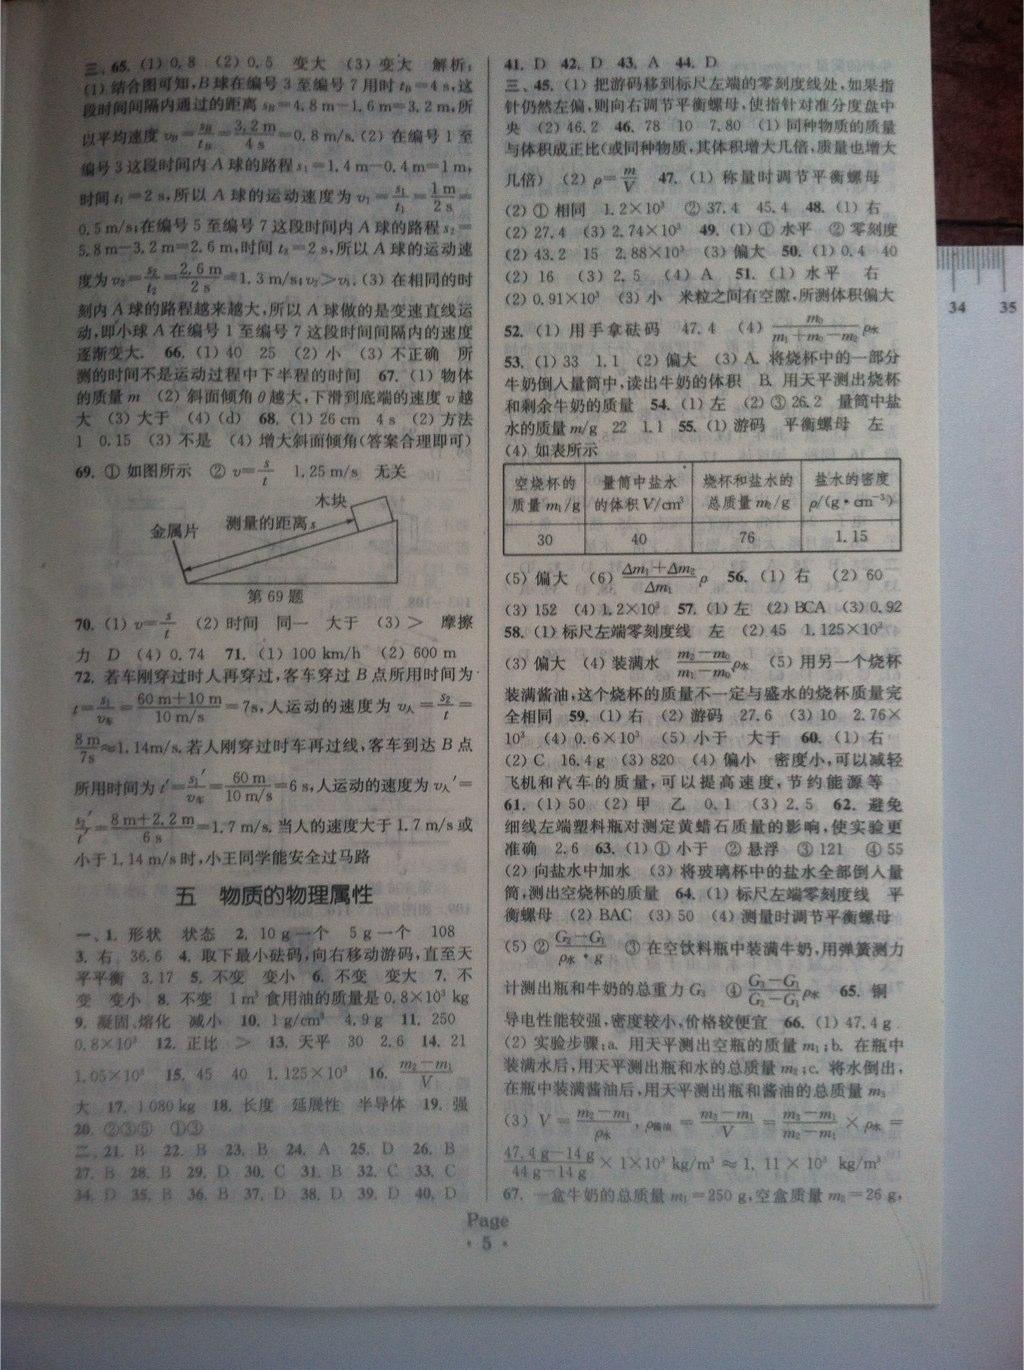 三、65. (1) 0.8 (2) 0.5 变大 (3) 变大 解析：
(1) 结合图可知,B 球在编号 3 至编号 7 用时 tB＝4 s,这
段时间间隔内通过的距离 sB＝4.8 m－1.6 m＝3.2 m,所
以平均速度 vB＝sB/tB＝3.2 m/4 s＝0.8 m/s. (2) 在编号 1 至
编号 3 这段时间内 A 球的路程 s1＝1.4 m－0.4 m＝1 m,
时间 t1＝2 s,所以 A 球的运动速度为 v1＝s1/t1＝1 m/2 s＝
0.5 m/s;在编号 5 至编号 7 这段时间内 A 球的路程 s2＝
5.8 m－3.2 m＝2.6 m,时间 t2＝2 s,所以 A 球的运动速
度为 v2＝s2/t2＝2.6 m/2 s＝1.3 m/s;v2＞v1. (3) 在相同的时
刻内 A 球的路程越来越大,所以 A 球做的是变速直线运
动,即小球 A 在编号 1 至编号 7 这段时间间隔内的速度
逐渐变大. 66. (1) 40 25 (2) 小 (3) 不正确 所
测的时间不是运动过程中下半程的时间 67. (1) 物体
的质量 m (2) 斜面倾角 θ 越大,下滑到底端的速度 v 越
大 (3) 大于 (4) (d) 68. (1) 26 cm 4 s (2) 方法
1 0.15 (3) 不是 (4) 增大斜面倾角(答案合理即可)
69. ① 如图所示 ② v＝s/t 1.25 m/s 无关
木块
测量的距离 s
金属片
第 69 题
70. (1) v＝s/t (2) 时间 同一 大于 (3) ＞ 摩擦
力 D (4) 0.74 71. (1) 100 km/h (2) 600 m
72. 若车刚穿过时人再穿过,客车穿过 B 点所用时间为
t＝s1/v车＝60 m＋10 m/10 m/s＝7s,人运动的速度为 v人＝s2/t＝
8 m/7s≈1.14m/s. 若人刚穿过时车再过线,客车到达 B 点
所用时间为 t′＝s1′/v车＝60 m/10 m/s＝6 s,人运动的速度为 v人′＝
s2′/t′＝8 m＋2.2 m/6 s＝1.7 m/s. 当人的速度大于 1.7 m/s 或
小于 1.14 m/s 时,小王同学能安全过马路
五 物质的物理属性
一、1. 形状 状态 2. 10 g 一个 5 g 一个 108
3. 右 36.6 4. 取下最小砝码,向右移动游码,直至天
平平衡 3.17 5. 不变 变小 6. 不变 变大 7. 不
变 变小 8. 不变 1 m³ 食用油的质量是 0.8×10³ kg
9. 凝固、熔化 减小 10. 1 g/cm³ 4.9 g 11. 250
0.8×10³ 12. 正比 ＞ 13. 天平 30 2.6 14. 21
1.05×10³ 15. 45 40 1.125×10³ 16. m2－m1/V
大 17. 1 080 kg 18. 长度 延展性 半导体 19. 强
20. ②③⑤ ①③
二、21. B 22. B 23. B 24. A 25. D 26. B
27. B 28. B 29. D 30. C 31. B 32. C 33. C
34. D 35. B 36. B 37. D 38. D 39. D 40. D
41. D 42. D 43. A 44. D
三、45. (1) 把游码移到标尺左端的零刻度线处,如果指
针仍然左偏,则向右调节平衡螺母,使指针对准分度盘中
央 (2) 46.2 46. 78 10 7.80 (1) 同种物质的质量
与体积成正比(或同种物质,其体积增大几倍,质量也增大
几倍) (2) ρ＝m/V 47. (1) 称量时调节平衡螺母
(2) ① 相同 1.2×10³ ② 37.4 45.4 48. (1) 右
(2) 27.4 (3) 2.74×10³ 49. (1) ① 水平 ② 零刻度
(2) 43.2 15 2.88×10³ (3) 偏大 50. (1) 0.4 40
(2) 16 (3) 2.5 (4) A 51. (1) 水平 右
(2) 0.91×10³ (3) 小 米粒之间有空隙,所测体积偏大
52. (1) 用手拿砝码 47.4 (4) m0/m1＋m0－m2 ρ水
53. (1) 33 1.1 (2) 偏大 (3) A. 将烧杯中的一部分
牛奶倒人量筒中,读出牛奶的体积 B. 用天平测出烧杯
和剩余牛奶的质量 54. (1) 左 (2) ③ 26.2 量筒中盐
水的质量 m/g 22 1.1 55. (1) 游码 平衡螺母 左
(4) 如表所示
空烧杯的 量筒中盐水 烧杯和盐水的 盐水的密度
质量 m1/g 的体积 V/cm³ 总质量 m2/g ρ/(g·cm⁻³)
30 40 76 1.15
(5) 偏大 (6) Δm1＋Δm2/Δm1 ρ 56. (1) 右 (2) 60
(3) 152 (4) 1.2×10³ 57. (1) 左 (2) BCA (3) 0.92
58. (1) 标尺左端零刻度线 左 (2) 45 1.125×10³
(3) 偏大 (4) 装满水 m2－m0/m1－m0 ρ水 (5) 用另一个烧杯
装满酱油,这个烧杯的质量不一定与盛水的烧杯质量完
全相同 59. (1) 右 (2) 游码 27.6 (3) 10 2.76×
10³ (4) 0.6×10³ (5) 小于 大于 60. (1) 右
(2) C 16.4 g (3) 820 (4) 偏小 密度小,可以减轻
飞机和汽车的质量,可以提高速度,节约能源等
61. (1) 50 (2) 甲 乙 0.1 (3) 2.5 62. 避免
细线左端塑料瓶对测定黄蜡石质量的影响,使实验更
准确 2.6 63. (1) ① 小于 ② 悬浮 ③ 121 ④ 55
(2) 向盐水中加水 (3) 将玻璃杯中的盐水全部倒人量
筒,测出空烧杯的质量 64. (1) 标尺左端零刻度线 平
衡螺母 (2) BAC (3) 50 (4) 测量时调节平衡螺母
(5) ② G2－G1/ρ水·g ③ 在空饮料瓶中装满牛奶,用弹簧测力
计测出瓶和牛奶的总重力 G3 ④ G3－G1/G2－G1 ρ水 65. 铜
导电性能较强,密度较小,价格较便宜 66. (1) 47.4 g
(2) 实验步骤:a. 用天平测出空瓶的质量 m1;b. 在瓶中
装满水后,用天平测出瓶和水的总质量 m2;c. 将水倒出,
在瓶中装满酱油后,用天平测出瓶和酱油的总质量 m3
(3) V＝m2－m1/ρ水,ρ酱油＝m3－m1/V＝m3－m1/m2－m1×ρ水＝
47.4 g－14 g/44 g－14 g×1×10³ kg/m³≈1.11×10³ kg/m³
67. 一盒牛奶的总质量 m1＝250 g,空盒质量 m2＝26 g,
Page
· 5 ·
34 35